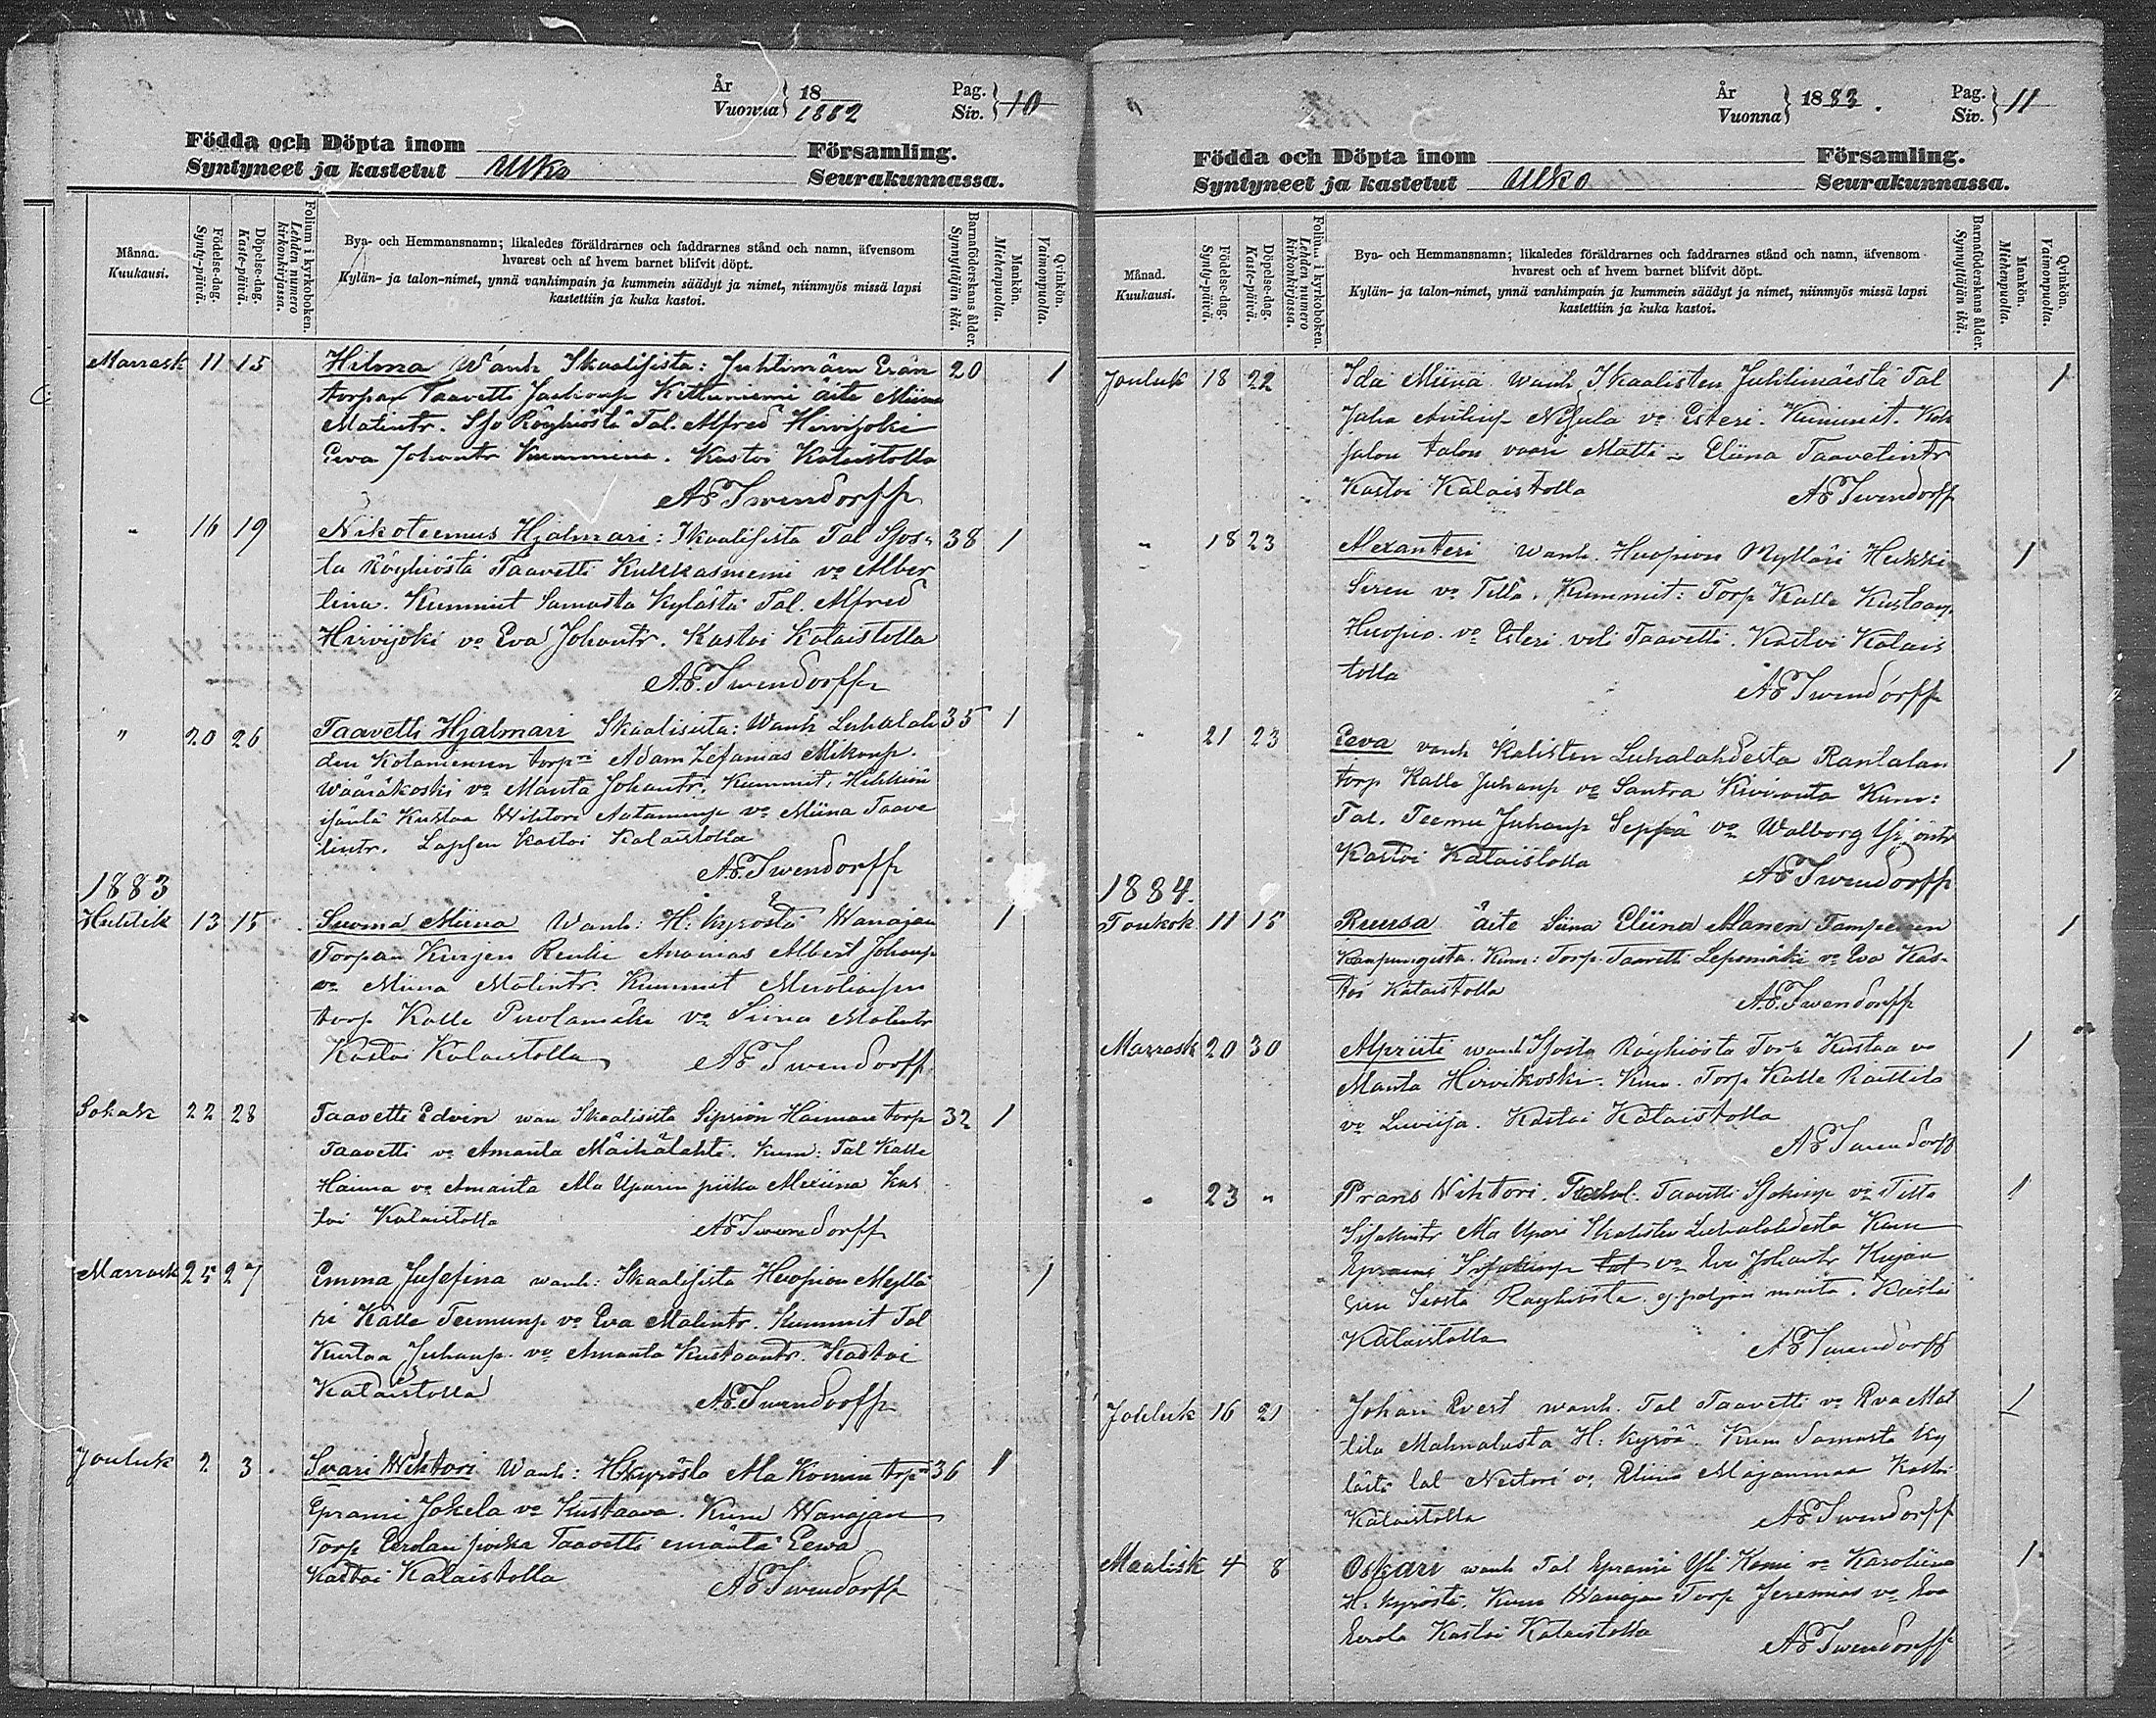 År
Vuonna
18
1882
Pag.
Siv.
10
Födda och Döpta inom Församling.
Syntyneet ja kastetut Ulko Seurakunnassa.
Månna.
Kuukausi.
Födelse-dag.
Synty-päivä.
Döpelse-dag.
Kaste-päivä.
Folium i kyrkoboken.
Lehden numero
kirkonkirjassa.
Bya- och Hemmansnamn; likaledes föräldrarnes och faddrarnes stånd och namn, äfvensom
hvarest och af hvem barnet blifvit döpt.
Kylän- ja talon-nimet, ynnä vanhimpain ja kummein säädyt ja nimet, niinmyös missä lapsi
kastettiin ja kuka kastoi.
Barnaföderskans ålder.
Synnyttäjän ikä.
Mankön.
Miehenpuolta.
Qvinkön.
Vaimonpuolta.
Marrask 11 15 Hilma Wanh Ikaalisista: Juhtimäen Erän 20 1
torpan Taavetti Kettuniemi äite Miina
Matintr. Isjo Röyhiöstä Tal. Alfred Hirvijoki
Eeva Johantr Kummina. Kastoi Kalaistolla
AE Iwendorff
" 16 19 Nikoteemus Hjalmari: Ikaalisista Tal Sjos- 38 1
ta Röyhiöstä Taavetti Kukkasniemi vo Alber
tina. Kummit Samasta Kylästä Tal. Alfred
Hirvijoki vo Eva Johantr. Kastoi Kalaistolla
A.E. Iwendorff
" 20 26 Taavetti Hjalmari Ikaalisista: Wanh Luhalah 35 1
den Kolaniemen torpri Adam Zefanias Mikonp.
Wääräkoski vo Manta Johantr. Kummit,
isäntä Kustaa Wihtori vo Miina Taave
tintr. Lapsen Kastoi Kalaistolla
A.E. Iwendorff
1883
Huhtik 13 15 Suoma Miina Wanh: H: kyröstä Wanajan 1
Torpan Kurjen Renki Ananias Albert Johanp
vo Miina Matintr. Kummit
torp Kalle Puolamäki vo Matintr
Kastoi Kalaistolla AE Iwendorff
Lokak 22 28 Taavetti Edvin wan Ikaalisista Sipsiön Haiman torp 32 1
Taavetti vo Amanta Mäihälahti. Kum: Tal Kalle
Haima vo Amanta Ala Uparin piika Kas
toi Kalaistolla AE Iwendorff
Marrask 25 27 Emma Jusefina wanh: Ikaalisista Huopion Myllä 1
ri Kalle Teemunp vo Eva Matintr. Kummit Tal
Kustaa Juhanp. vo Amanta Kustaantr. Kastoi
Kalaistolla A.E. Iwendorff
Jouluk 2 3 Ivari Wihtori Wanh: Hkyröstä Ala Komin torp 36 1
Eprami Jokela vo Kustaava. Kum Wanajan
Torp Eerolan poika Taavetti emäntä Eewa
Kastoi Kalaistolla AE Iwendorff
År
Vuonna
1883.
Pag.
Siv.
11
Födda och Döpta inom Församling.
Syntyneet ja kastetut Ulko Seurakunnassa.
Månad.
Kuukausi.
Födelse-dag.
Synty-päivä.
Döpelse-dag.
Kaste-päivä.
Folium i kyrkoboken.
Lehden numero
kirkonkirjassa.
Bya- och Hemmansnamn; likaledes föräldrarnes och faddrarnes stånd och namn, äfvensom
hvarest och af hvem barnet blifvit döpt.
Kylän- ja talon-nimet, ynnä vanhimpain ja kummein säädyt ja nimet, niinmyös missä lapsi
kastettiin ja kuka kastoi.
Barnaföderskans ålder.
Synnyttäjän ikä.
Mankön.
Miehenpuolta.
Qvinkön.
Vaimonpuolta.
Jouluk 18 22 Ida Miina Wanh Ikaalisten Juhtimäestä Tal 1
Juha Nisula vo Esteri. Kummit.
talon vaari Matti Eliina Taavetintr
Kastoi Kalaistolla AE Iwendorff
" 18 23 Alexanteri Wanh. Huopion Mylläri Heikki 1
Siren vo Tilta. Kummit: Torp Kalle Kustaanp
Huopio. vo Esteri veli Taavetti. Kastoi Kalais
tolla AE Iwendorff
" 21 23 Eeva vanh Kalisten Luhalahdesta Rantalan 1
torp Kalle Juhanp vo Santra Kiviranta Kum:
Tal. Teemu Juhanp Seppä vo Walborg
Kastoi Kalaistolla AE Iwendorff
1884.
Toukok 11 15 Ruusa äite Eliina Manen Tampereen 1
Kaupungista. Kum: Torp. Taavetti Lepomäki vo Eva Kas-
toi Kalaistolla A.E. Iwendorff
Marrask 20 30 Alpriiti wanh Isosta Röyhiöstä Torp Kustaa vo 1
Manta Hirvikoski. Kum. Torp Kalle Raittila
vo Luviisa. Kastoi Kalaistolla
AE Iwendorff
" 23 " Prans Wihtori. Taavetti vo Tilta 1
Ala Upari Ikalisten Luhalahdesta Kum
vo Eva Johantr
Isosta Röyhiöstä. Kastoi
Kalaistolla AE Iwendorff
Jouluk 16 21 Johan Evert wanh. Tal Taavetti vo Eva Mat 1
tila Mahnalasta H: kyröä. Kum Samasta ky
lästä tal Nestori vo Eliina Majanmaa Kastoi
Kalaistolla AE Iwendorff
Maalisk 4 8 Oskari wanh Tal Eprami Yli Komi vo Karoliina 1
H. kyröstä. Kum Wanajan Torp Jeremias vo Eva
Eerola Kastoi Kalaistolla AE Iwendorff